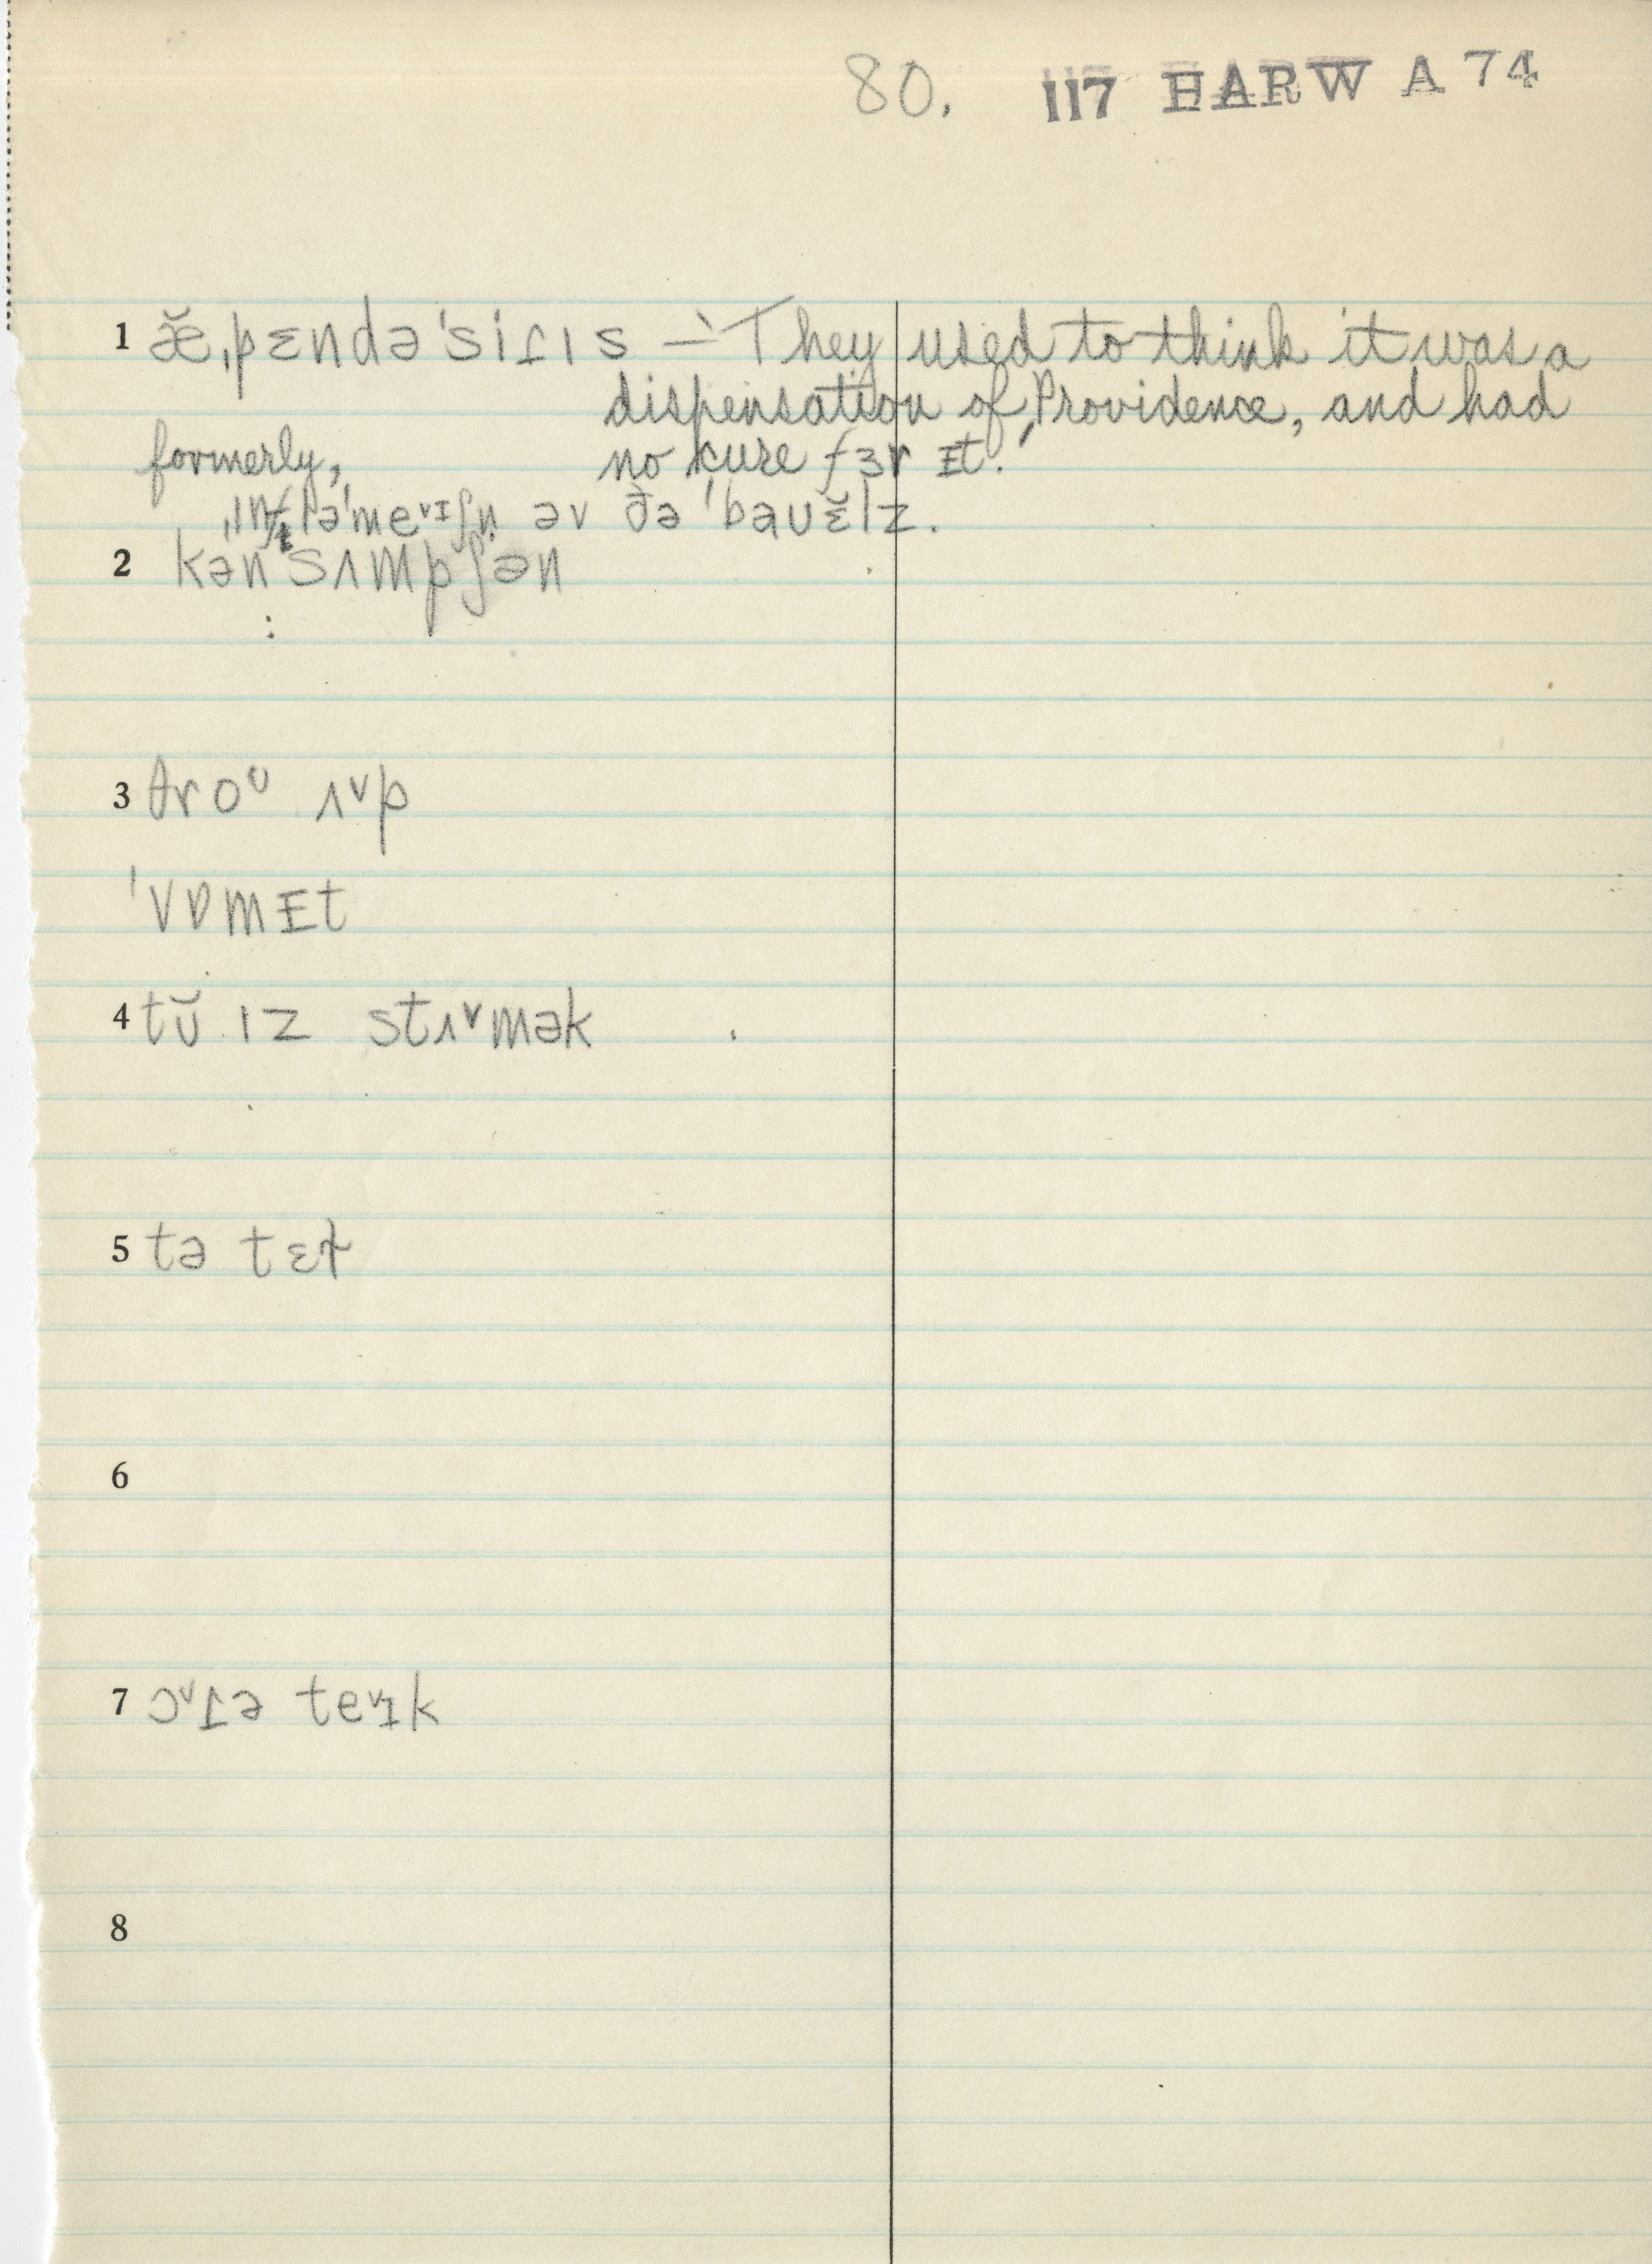 80. 117 HARW A 74
1 æ̆ˌpɛndəˈsiɾɪs — 'They used to think it was a
dispensation of Providence, and had
no cure fɜr ᵻt.'
formerly,
ˌɪnfləˈmeᵛɪʃn̩ əv ðə ˈbaʊɛ̆lz.
2 kənˈsʌmpʃən
3 θroᶷ ʌᵛp
ˈvɒmᵻt
4 tŭ ɪz stʌᵛmək
5 tə tɛɫ
6
7 ɔᵛɾə teᵛɪk
8